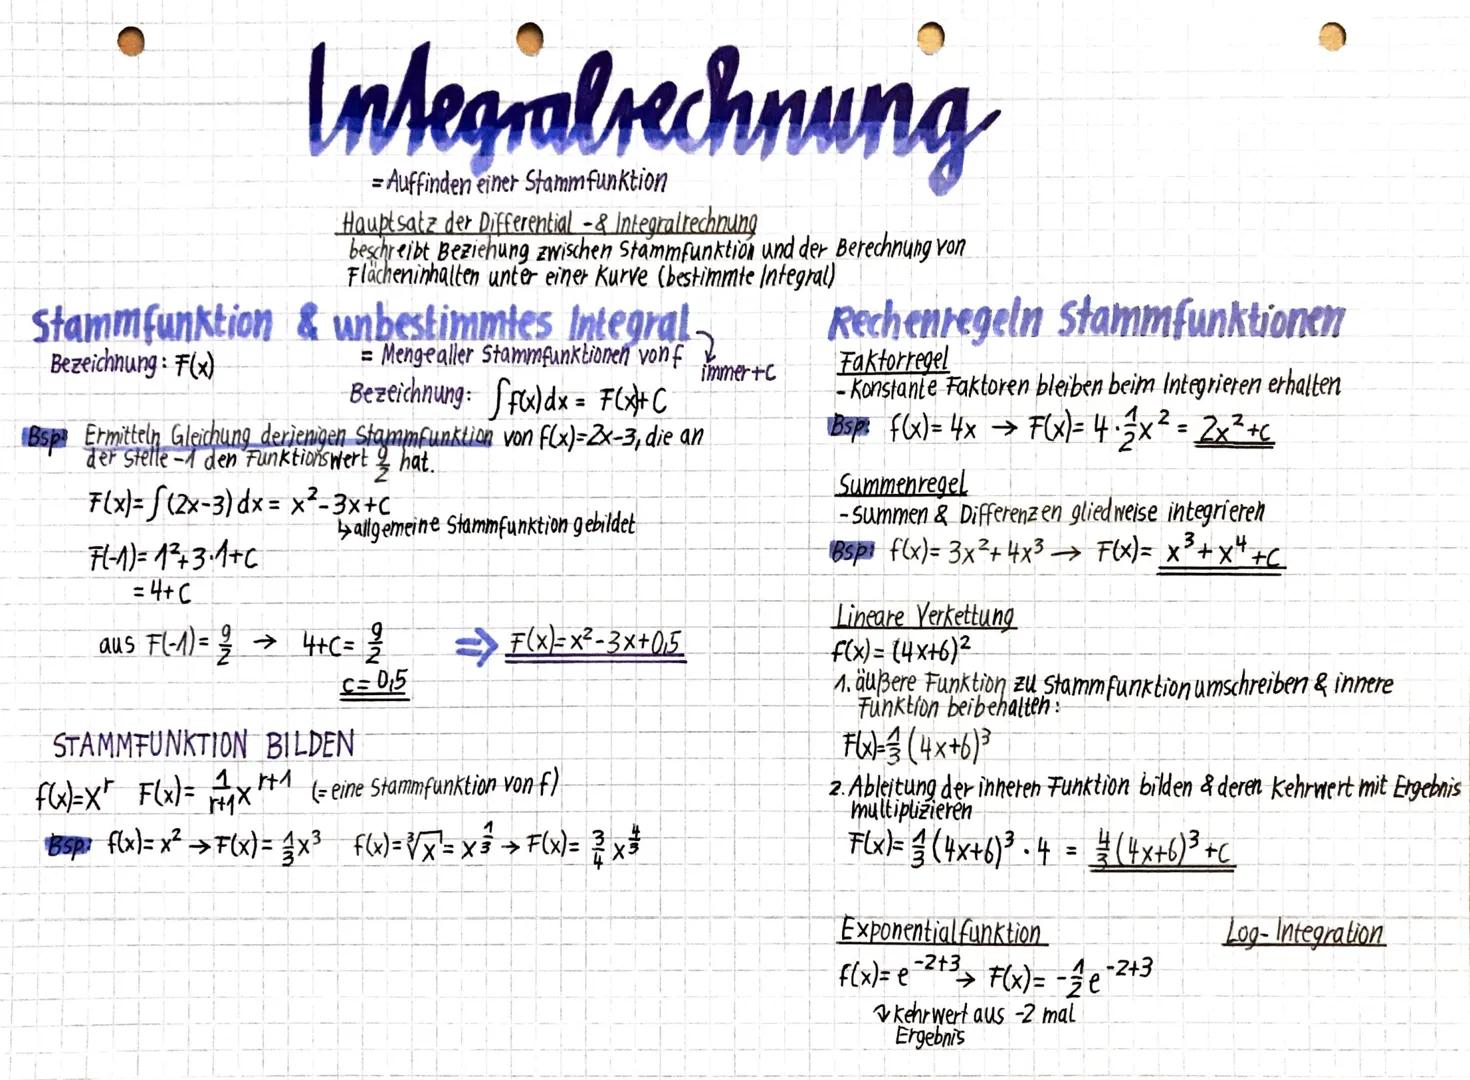 Integralrechnung
= Auffinden einer Stammfunktion
Hauptsatz der Differential -& Integralrechnung
beschreibt Beziehung zwischen Stammfunktion und der Berechnung von
Flächeninhalten unter einer Kurve (bestimmte Integral)
Stammfunktion & unbestimmtes Integral
Bezeichnung: F(x)
= Menge aller Stammfunktionen von f
immer +c
Bezeichnung: ∫f(x)dx = F(x)+C
Bsp: Ermitteln Gleichung derjenigen Stammfunktion von f(x)=2x-3, die an
der Stelle -1 den Funktionswert 9/2 hat.
F(x)=∫(2x-3)dx = x²-3x+c
↳allgemeine Stammfunktion gebildet
F(-1)= 1²+3·1+c
= 4+c
aus F(-1)= 9/2 → 4+c= 9/2 ⇒ F(x)=x²-3x+0,5
c=0,5
STAMMFUNKTION BILDEN
f(x)=x^r F(x)= 1/(r+1) x^(r+1) (=eine Stammfunktion von f)
Bsp: f(x)=x² →F(x)= 1/3 x³ f(x)=∛x = x^(1/3) → F(x)= 3/4 x^(4/3)
Rechenregeln Stammfunktionen
Faktorregel
- Konstante Faktoren bleiben beim Integrieren erhalten
Bsp: f(x)= 4x → F(x)= 4·1/2x² = 2x²+c
Summenregel
- Summen & Differenzen gliedweise integrieren
Bsp: f(x)= 3x²+4x³ → F(x)= x³+x⁴+c
Lineare Verkettung
f(x)= (4x+6)²
1. äußere Funktion zu Stammfunktion umschreiben & innere
Funktion beibehalten:
F(x)=1/3(4x+6)³
2. Ableitung der inneren Funktion bilden & deren Kehrwert mit Ergebnis
multiplizieren
F(x)= 1/3(4x+6)³ · 4 = 4/3(4x+6)³+c
Exponentialfunktion
f(x)= e^(-2+3) → F(x)= -1/2 e^(-2+3)
↳ Kehrwert aus -2 mal
Ergebnis
Log-Integration